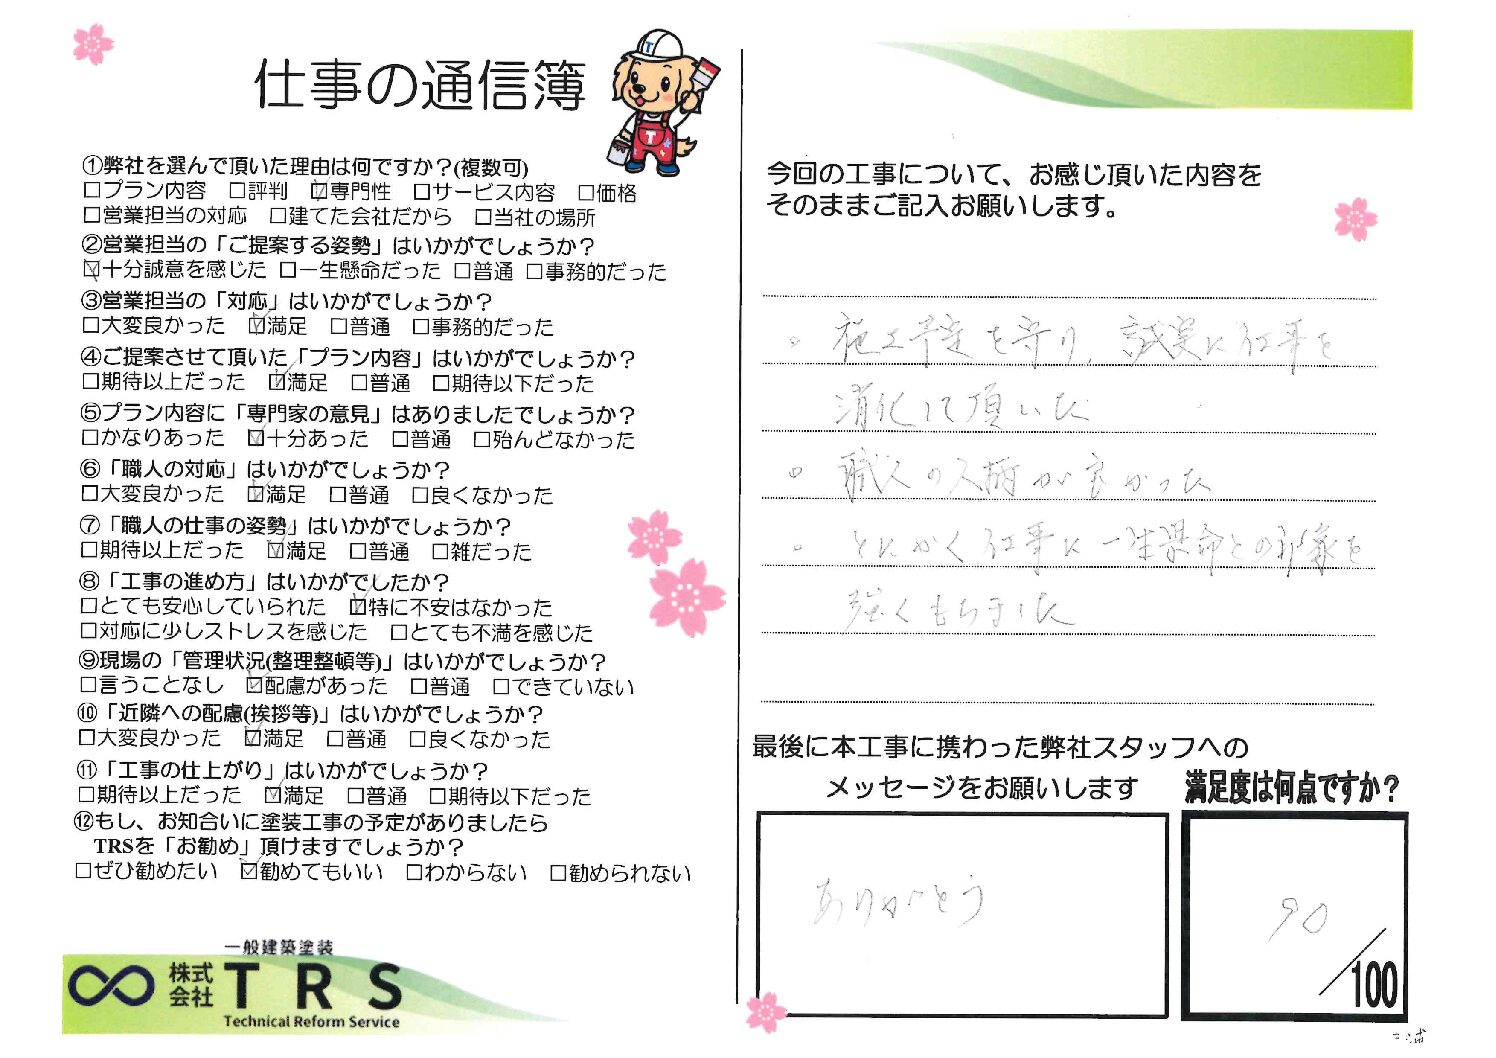 仕事の通信簿
①弊社を選んで頂いた理由は何ですか?(複数可)
□プラン内容 □評判 ☑専門性 □サービス内容 □価格
□営業担当の対応 □建てた会社だから □当社の場所
②営業担当の「ご提案する姿勢」はいかがでしょうか?
☑十分誠意を感じた □一生懸命だった □普通 □事務的だった
③営業担当の「対応」はいかがでしょうか?
□大変良かった ☑満足 □普通 □事務的だった
④ご提案させて頂いた「プラン内容」はいかがでしょうか?
□期待以上だった ☑満足 □普通 □期待以下だった
⑤プラン内容に「専門家の意見」はありましたでしょうか?
□かなりあった ☑十分あった □普通 □殆んどなかった
⑥「職人の対応」はいかがでしょうか?
□大変良かった ☑満足 □普通 □良くなかった
⑦「職人の仕事の姿勢」はいかがでしょうか?
□期待以上だった ☑満足 □普通 □雑だった
⑧「工事の進め方」はいかがでしたか?
□とても安心していられた ☑特に不安はなかった
□対応に少しストレスを感じた □とても不満を感じた
⑨現場の「管理状況(整理整頓等)」はいかがでしょうか?
□言うことなし ☑配慮があった □普通 □できていない
⑩「近隣への配慮(挨拶等)」はいかがでしょうか?
□大変良かった ☑満足 □普通 □良くなかった
⑪「工事の仕上がり」はいかがでしょうか?
□期待以上だった ☑満足 □普通 □期待以下だった
⑫もし、お知合いに塗装工事の予定がありましたら
TRSを「お勧め」頂けますでしょうか?
□ぜひ勧めたい ☑勧めてもいい □わからない □勧められない
一般建築塗装
株式会社 TRS
Technical Reform Service
今回の工事について、お感じ頂いた内容を
そのままご記入お願いします。
。施工予定を守り、誠実に仕事を
消化して頂いた
。職人の人柄が良かった
。とにかく仕事に一生懸命との印象を
強くもちました
最後に本工事に携わった弊社スタッフへの
メッセージをお願いします
ありがとう
満足度は何点ですか?
90
/100